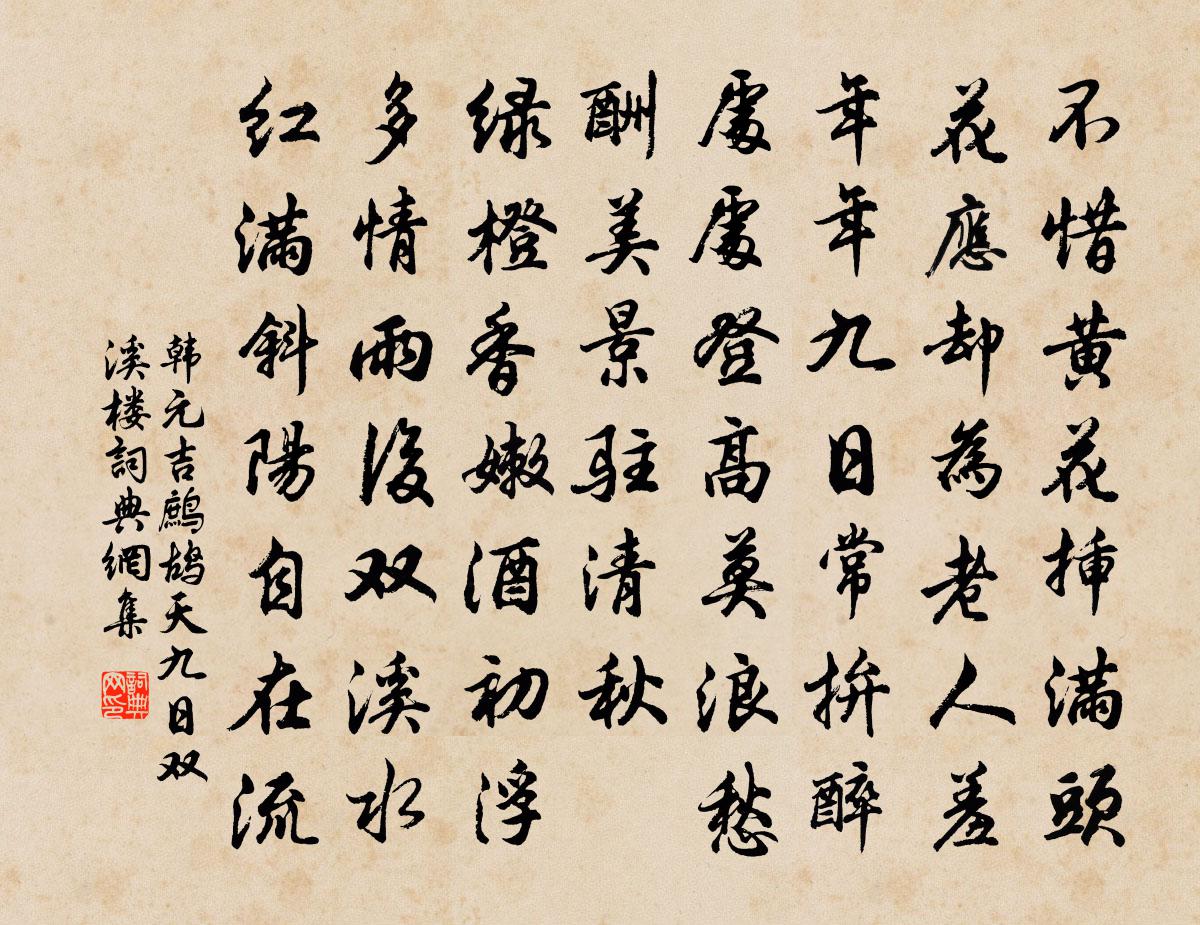 不惜黄花插滿頭
花應却為老人羞
年年九日常拚醉
處處登高莫浪愁
酬美景駐清秋
绿橙香嫩酒初浮
多情雨後双溪水
红滿斜陽自在流
韩元吉鹧鸪天九日双
溪楼詞典網集
詞典网印